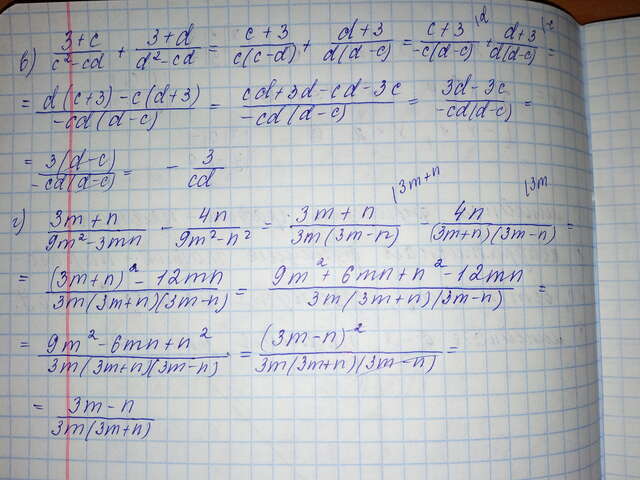 в) (3+c)/(c²-cd) + (3+d)/(d²-cd) = (c+3)/(c(c-d)) + (d+3)/(d(d-c)) = (c+3)/(-c(d-c)) |d + (d+3)/(d(d-c)) |-c =
= (d(c+3)-c(d+3))/(-cd(d-c)) = (cd+3d-cd-3c)/(-cd(d-c)) = (3d-3c)/(-cd(d-c)) =
= (3(d-c))/(-cd(d-c)) = - 3/(cd)
г) (3m+n)/(9m²-3mn) - (4n)/(9m²-n²) = (3m+n)/(3m(3m-n)) |3m+n - (4n)/((3m+n)(3m-n)) |3m =
= ((3m+n)²-12mn)/(3m(3m+n)(3m-n)) = (9m²+6mn+n²-12mn)/(3m(3m+n)(3m-n)) =
= (9m²-6mn+n²)/(3m(3m+n)(3m-n)) = (3m-n)²/(3m(3m+n)(3m-n)) =
= (3m-n)/(3m(3m+n))